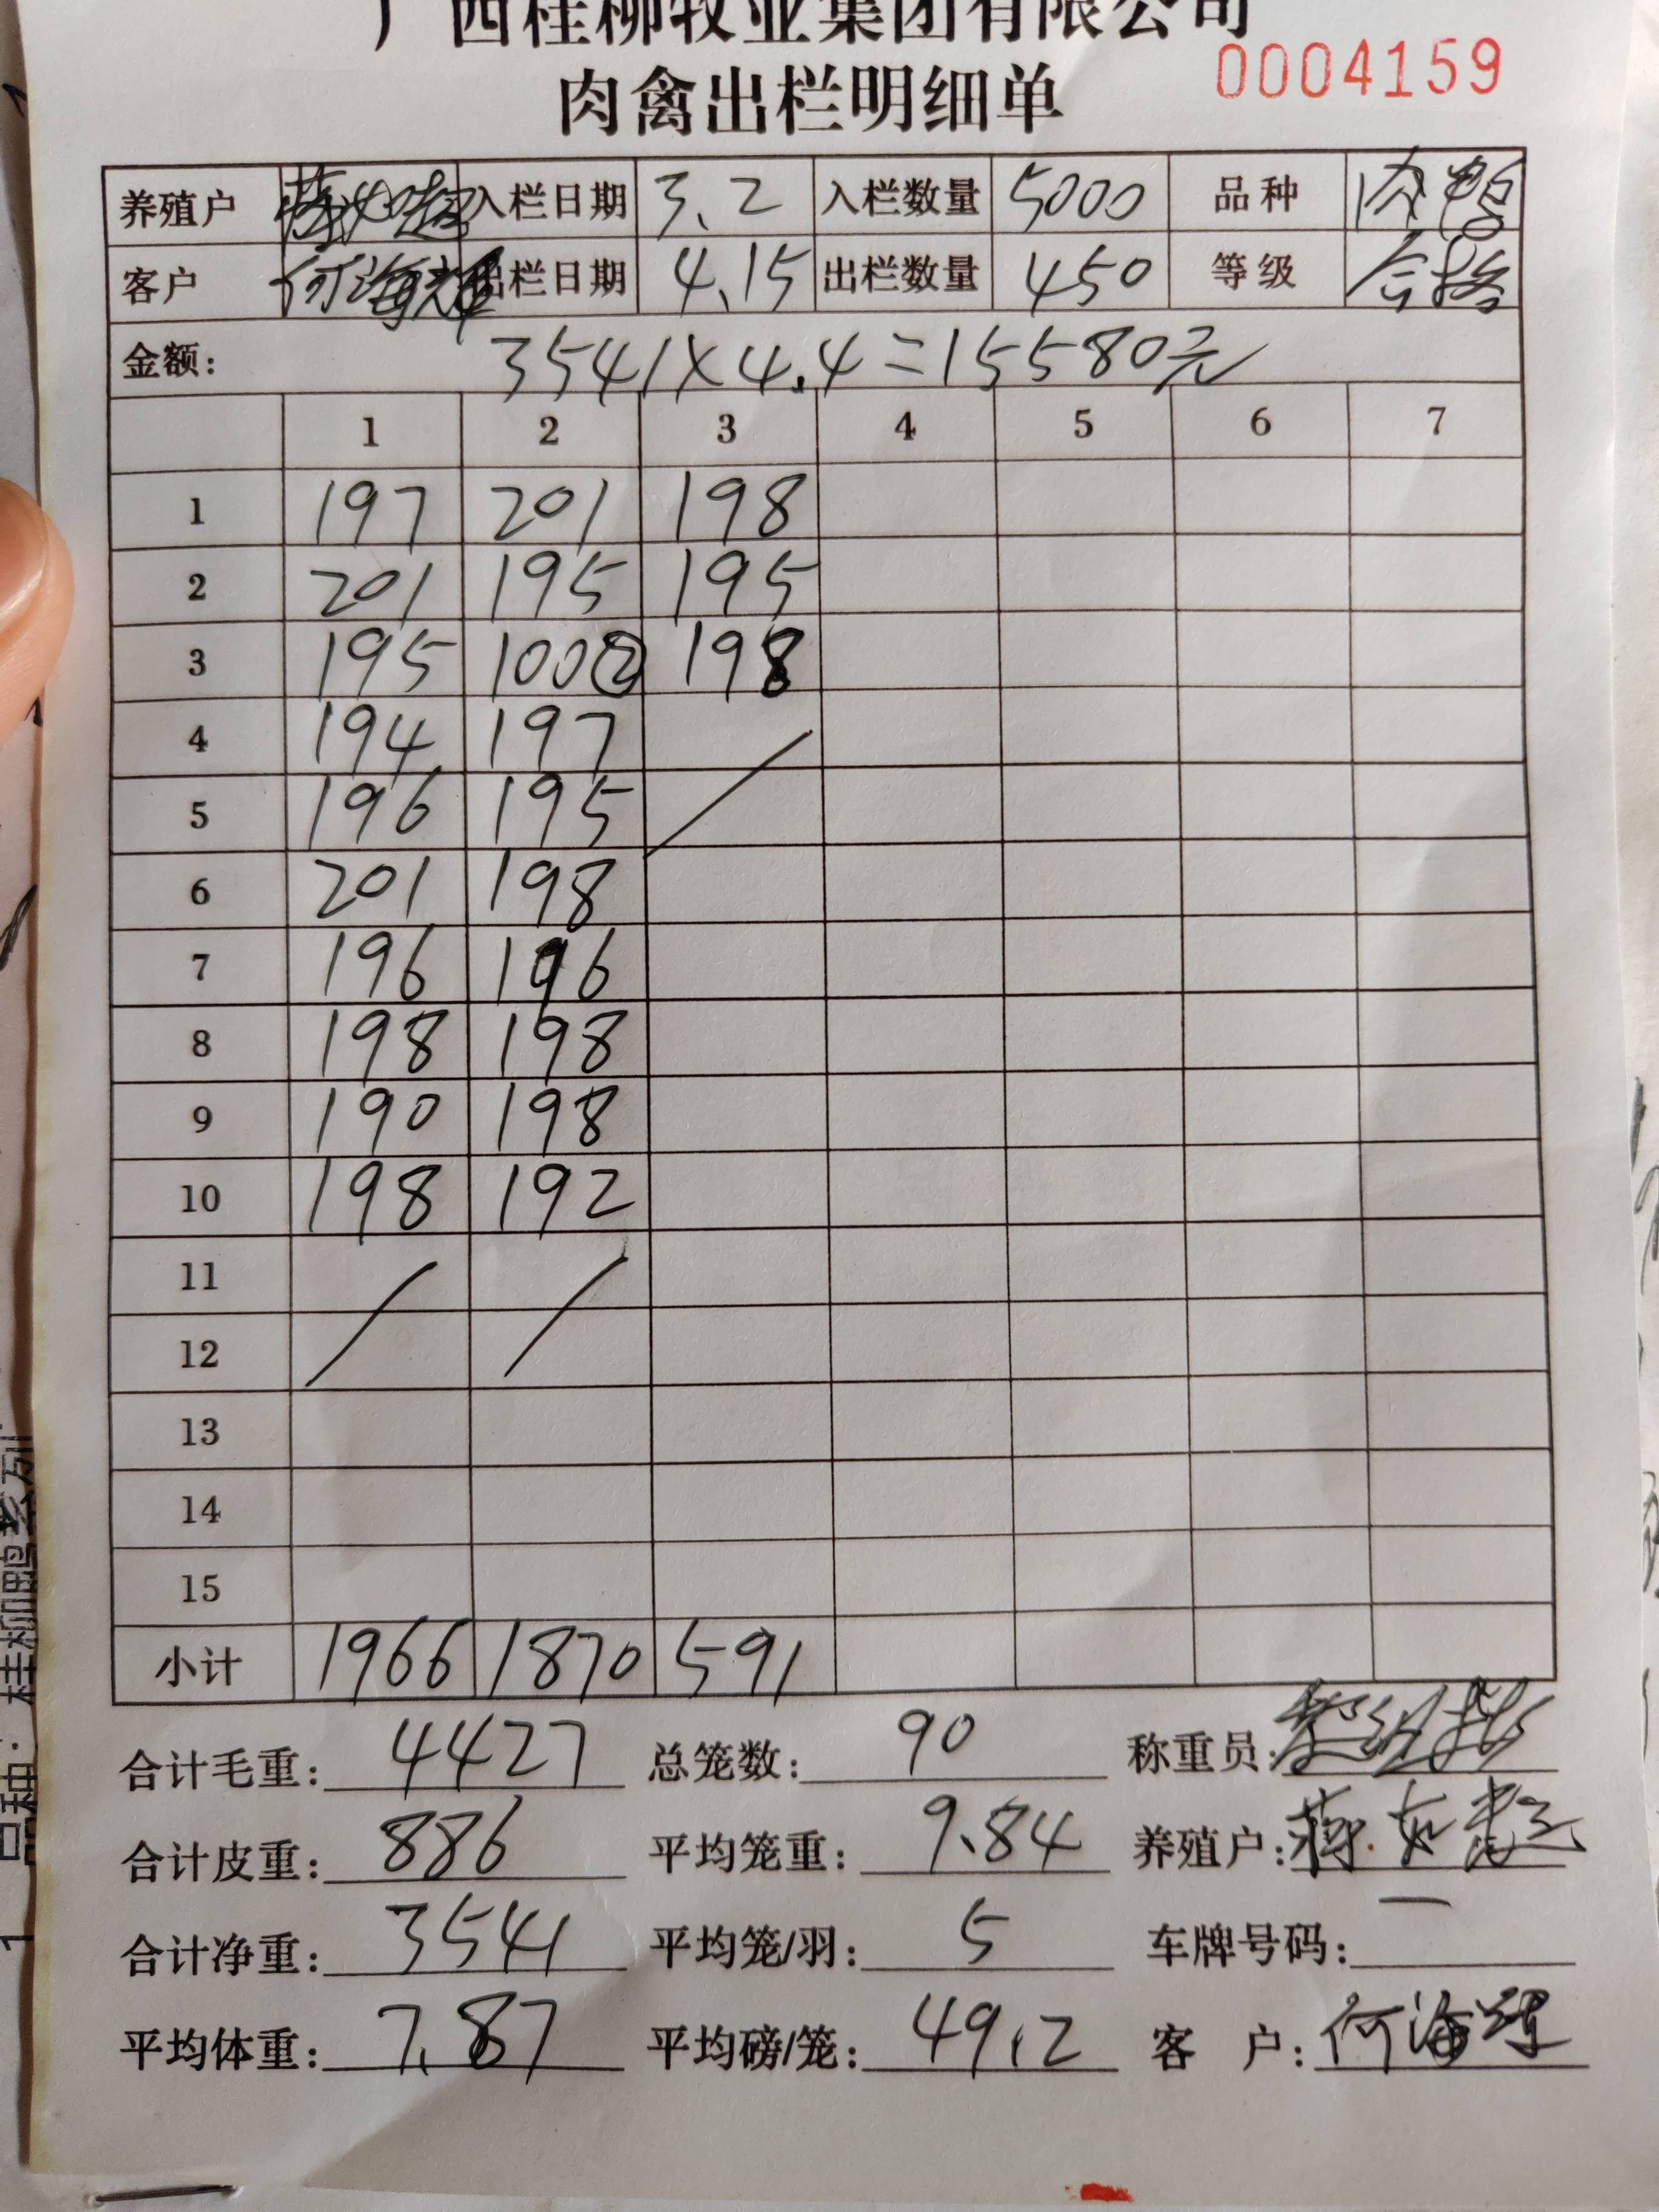 广西桂柳牧业集团有限公司
肉禽出栏明细单 0004159
养殖户 入栏日期 3.2 入栏数量 5000 品种 肉鸭
客户 何海 出栏日期 4.15 出栏数量 450 等级 合格
金额: 3541×4.4=15580元
1 2 3 4 5 6 7
1 197 201 198
2 201 195 195
3 195 100② 198
4 194 197
5 196 195
6 201 198
7 196 196
8 198 198
9 190 198
10 198 192
11
12
13
14
15
小计 1966 1870 591
合计毛重: 4427 总笼数: 90 称重员:
合计皮重: 886 平均笼重: 9.84 养殖户:
合计净重: 3541 平均笼/羽: 5 车牌号码: 一
平均体重: 7.87 平均磅/笼: 49.2 客 户: 何海